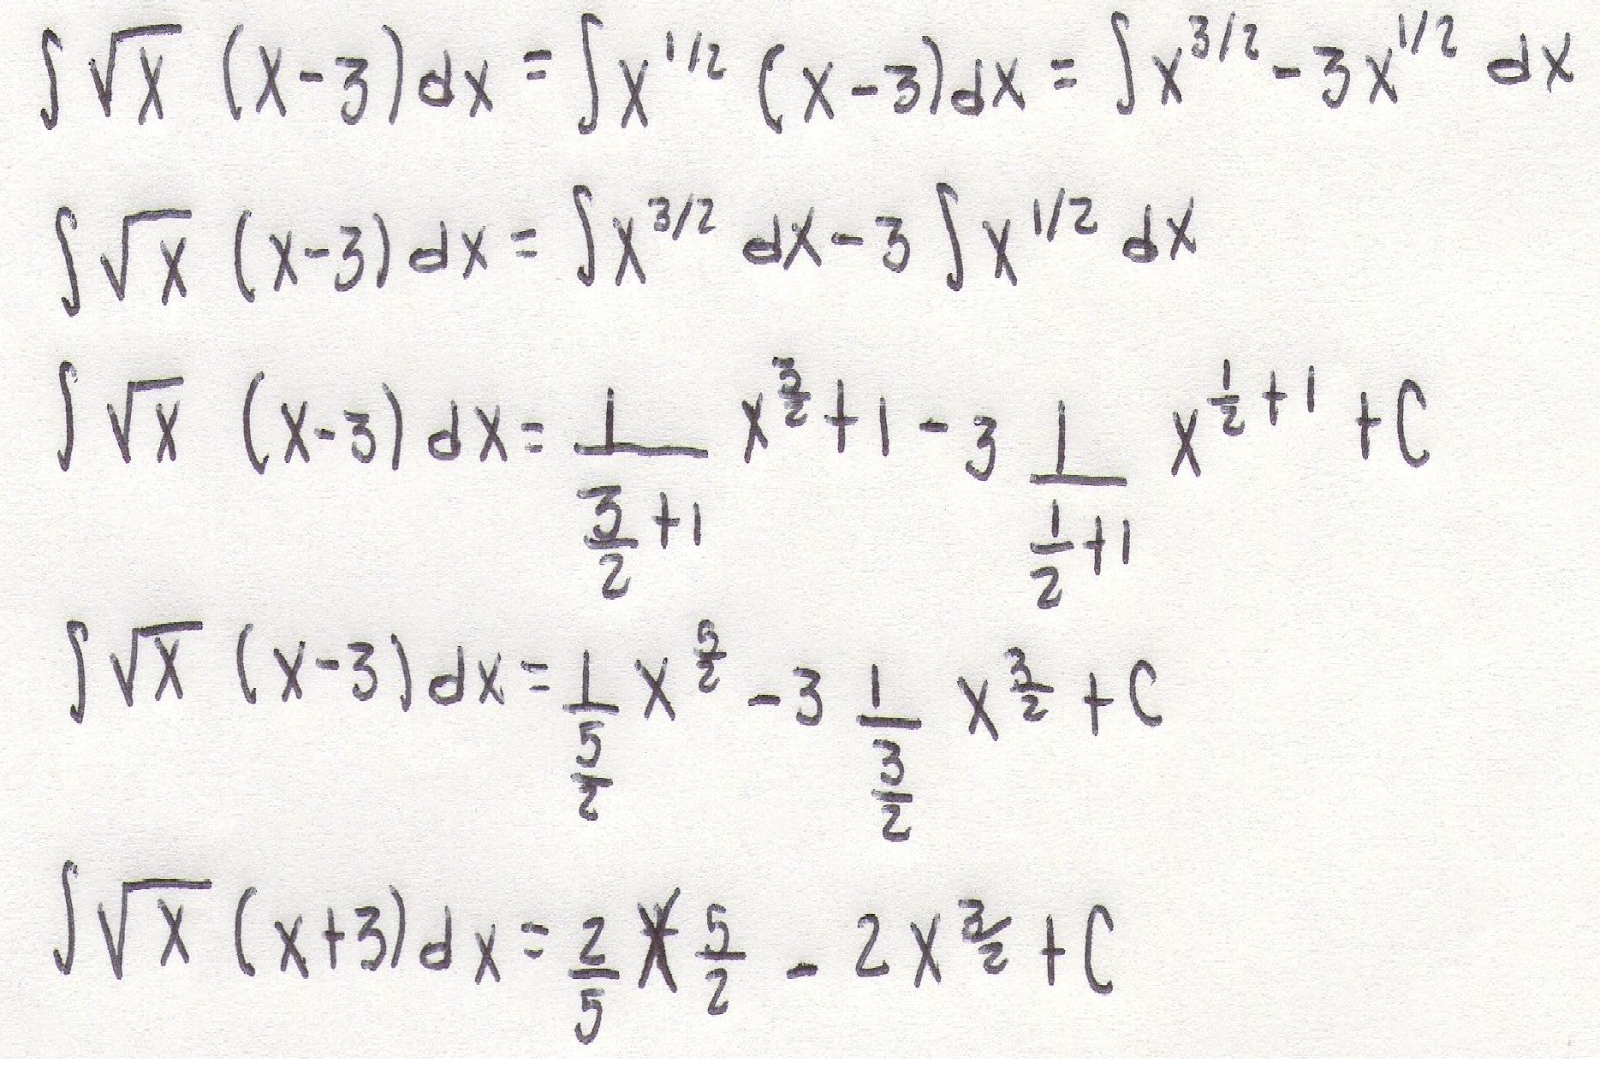 ∫√x (x-3)dx = ∫x^{1/2} (x-3)dx = ∫x^{3/2} - 3x^{1/2} dx
∫√x (x-3)dx = ∫x^{3/2} dx - 3∫x^{1/2} dx
∫√x (x-3)dx = \frac{1}{\frac{3}{2}+1} x^{\frac{3}{2}+1} - 3 \frac{1}{\frac{1}{2}+1} x^{\frac{1}{2}+1} + C
∫√x (x-3)dx = \frac{1}{\frac{5}{2}} x^{\frac{5}{2}} - 3 \frac{1}{\frac{3}{2}} x^{\frac{3}{2}} + C
∫√x (x+3)dx = \frac{2}{5} x^{\frac{5}{2}} - 2x^{\frac{3}{2}} + C